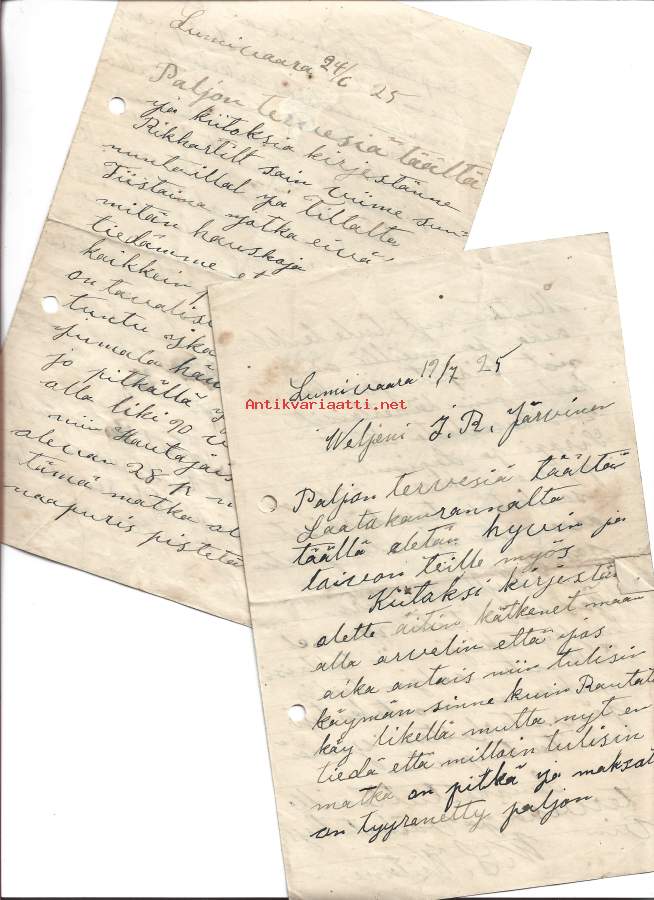 Lumivaara 24/6 25
Paljon terveisiä täältä
ja kiitoksia kirjestänne
Rikhartilt sain viime sun=
nuntaillal ja tillalta
Tiistaina jotka eivä
mitän hauskoja
tiedämme et
kaikkein
on tavalise
tuntu ska
jumala hän
jo pitkällä
alla liki 90
niin Hautajais
olevan 28 p
tämä matka ol
naapuris pistetä
Antikvariaatti.net
Lumivaara 19/7 25
Weljeni J. R. Järvinen
Paljon terveisiä täältä
Laatakan rannalta
täällä oletän hyvin ja
toivon teille myös
Kiitoksi kirjestä
olette äitin kätkenet maan
alla arvelin että jos
aika antais niin tulisin
käymän sinne kuin Rautat
käy likellä mutta nyt en
tiedä että milloin tulisin
matka on pitkä ja maksat
on tyyranetty paljon